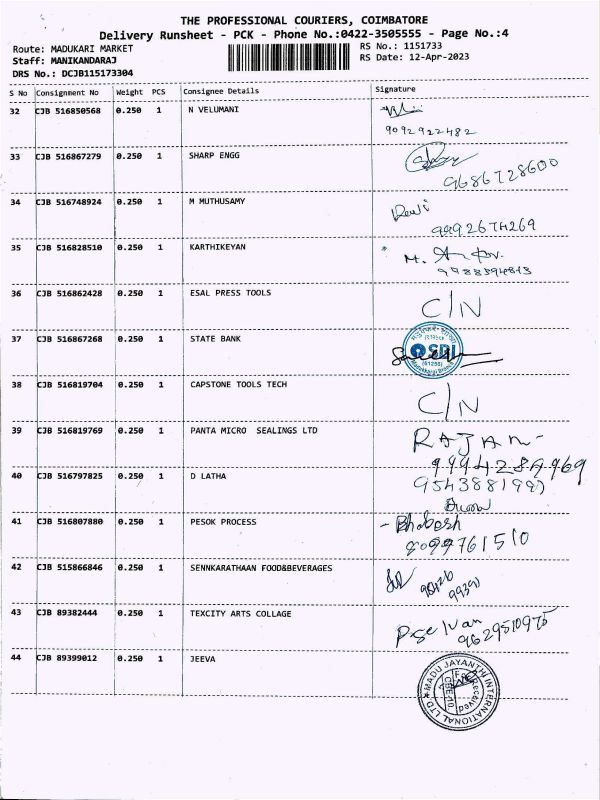 THE PROFESSIONAL COURIERS, COIMBATORE
Delivery Runsheet - PCK - Phone No.:0422-3505555 - Page No.:4
Route: MADUKARI MARKET RS No.: 1151733
Staff: MANIKANDARAJ RS Date: 12-Apr-2023
DRS No.: DCJB115173304
S No Consignment No Weight PCS Consignee Details Signature
32 CJB 516850568 0.250 1 N VELUMANI
9092922482
33 CJB 516867279 0.250 1 SHARP ENGG
9686728600
34 CJB 516748924 0.250 1 M MUTHUSAMY
35 CJB 516828510 0.250 1 KARTHIKEYAN
36 CJB 516862428 0.250 1 ESAL PRESS TOOLS C/N
37 CJB 516867268 0.250 1 STATE BANK SBI
38 CJB 516819704 0.250 1 CAPSTONE TOOLS TECH C/N
39 CJB 516819769 0.250 1 PANTA MICRO SEALINGS LTD RAJAN-
9994284969
40 CJB 516797825 0.250 1 D LATHA
41 CJB 516807880 0.250 1 PESOK PROCESS - Bhobesh
8099761510
42 CJB 515866846 0.250 1 SENNKARATHAAN FOOD&BEVERAGES
43 CJB 89382444 0.250 1 TEXCITY ARTS COLLAGE
9629510975
44 CJB 89399012 0.250 1 JEEVA
MADU JAYANTHI INTERNATIONAL LTD